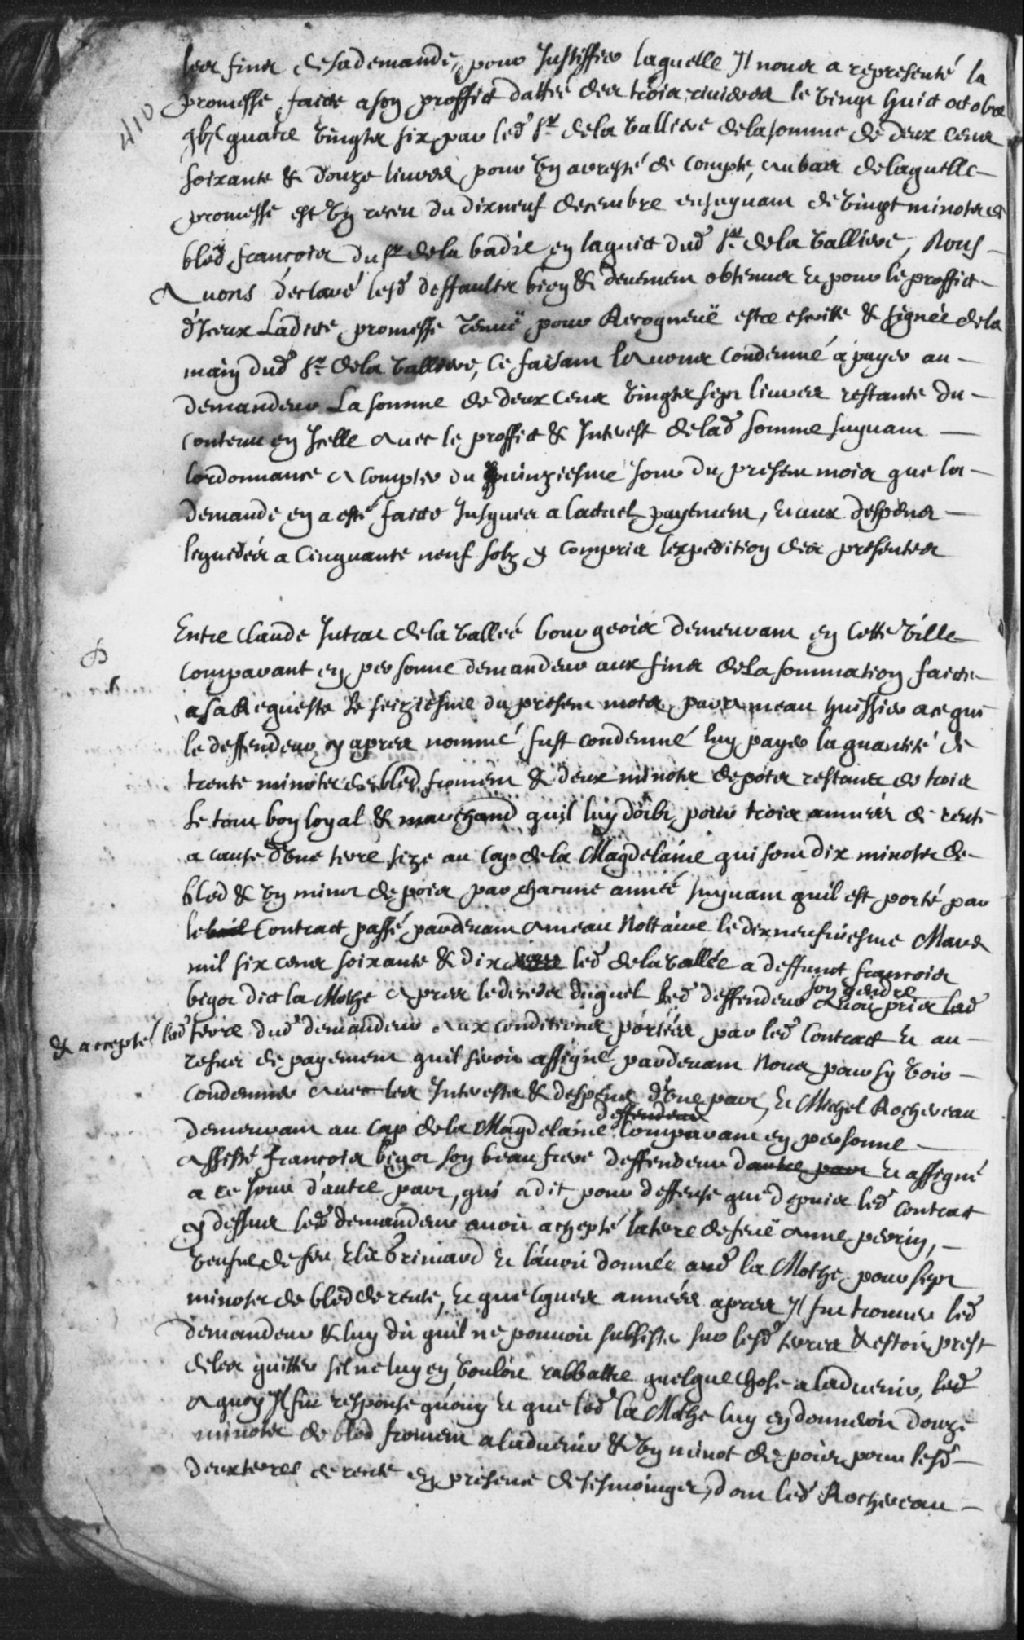 les fins de sa demande, pour Justiffier laquelle Il nous a representé la
410
promesse faite a son proffict dattée des trois rivieres le vingt huict octobre
gbjc quatre vingts six par led Sr de la valliere de la somme de deux cens
soixante & douze livres pour un arresté de compte, au bas de laquelle
promesse est un receu du dixneuf decembre ensuyuant de vingt minots de
bled francois du Sr de la badie en laquit dud Sr de la valliere, Nous
Auons declaré lesd deffaults bien & deuement obtenus et pour le proffict
d'Iceux Ladite promesse tenuë pour Recogneuë estre escritte & signée de la
main dud Sr de la valliere, Ce faisant lauons Condemné a payer au
demandeur La somme de deux cens vingts sept livres restante du
contenu en Icelle auec le proffict & Interest de lad somme suyuant
lordonnance a compter du quinziesme jour du present moies que la
demande en a esté faicte Jusques a lactuel payement, et aux despens
liquidés a Cinquante neuf solz y compris lexpedition des presentes
Entre Claude Jutras de la vallée bourgeois demeurant en cette ville
comparant en personne demandeur aux fins de la sommation faicte
a sa Requeste le seiziesme du present mois par ameau huissier a ce que
le deffendeur cy apres nommé fust condemné luy payer la quantité de
trente minots de bled froment & deux minots de pois restants de trois
Le tout bon loyal & marchand quil luy doibt pour trois années de rente
a cause d'une terre size au Cap de la Magdelaine qui sont dix minots de
bled & un minot de pois par chacune année suyuant quil est porté par
le bail Contract passé pardeuant ameau Nottaire le dixneufviesme Mars
mil six cens soixante & dix led de la vallée a deffunct francois
bigot dict la Mothe apres le deceds duquel led deffendeur son gendre auroit pris lad
& accepté lad terre dud demandeur aux conditions portées par led Contract et au
refus de payement quil seroit assigné pardeuant Nous pour sy voir
condemner auec les Interests & despens d'une part, et Michel Rochereau
demeurant au Cap de la Magdelaine deffendeur Comparant en personne
assisté francois bigot son beau frere deffendeur dautre part et assigné
a ce jour d'autre part, qui a dit pour deffense que depuis led Contract
cy dessus led demandeur auoit accepté la terre de feuë Anne perrin,
veufue de feu Elie Grimard et lauoit donnée aud la Mothe pour sept
minots de bled de rente, et quelques années apres Il fut trouuer led
demandeur & luy dit quil ne pouuoit subsister sur lesd terres & estoit prest
de les quitter sil ne luy en vouloit rabbattre quelque chose a laduenir, led
a quoy Il fut response quouy et que led la Mothe luy en donneroit douze
minots de bled froment a laduenir & un minot de pois pour lesd
deux terres de rente en presence de tesmoings, dont led Rochereau